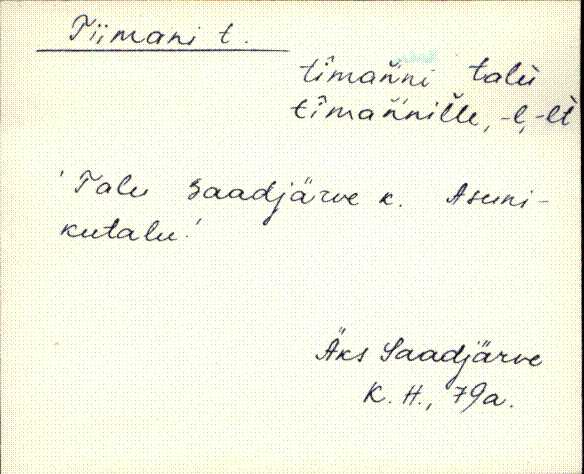 Tiimani t.
tîmańni talu
tîmańnille, -l, -lt
'Talu Saadjärve k. Asuni-
kutalu.'
Äks Saadjärve
K. H., 79a.